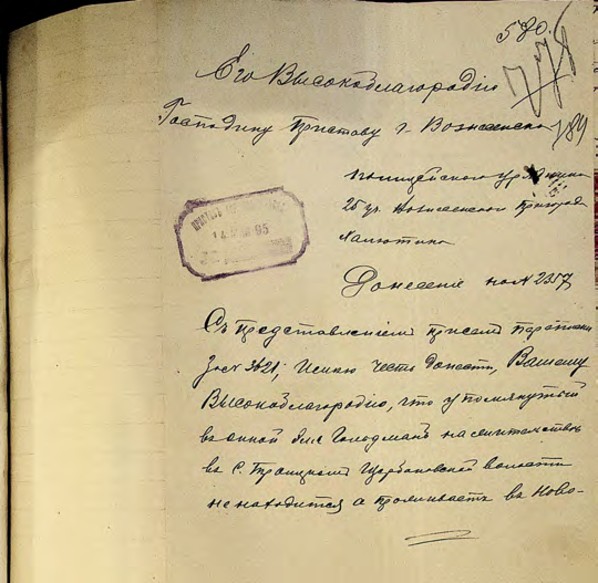 580.
Его Высокоблагородію
Господину Приставу г. Вознесенска
189
Полицейского урядника
25 уч. Вознесенского Пригорода
Донесеніе на № 2357
Съ представленіем при сем переписки
за № 3621, Имею честь донести, Вашему
Высокоблагородію, что упомянутый
въ оной Голодман на жительстве
въ с. Троицком Щербановской волости
не находится а проживаетъ въ Ново-